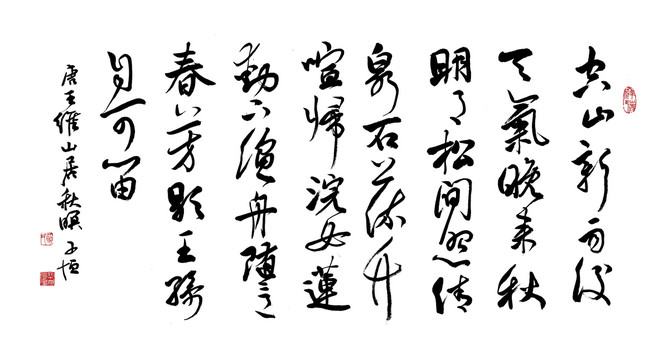 空山新雨後
天氣晚來秋
明月松間照清
泉石上流竹
喧歸浣女蓮
動下漁舟隨意
春芳歇王孫
自可留
唐王維山居秋暝 子恒